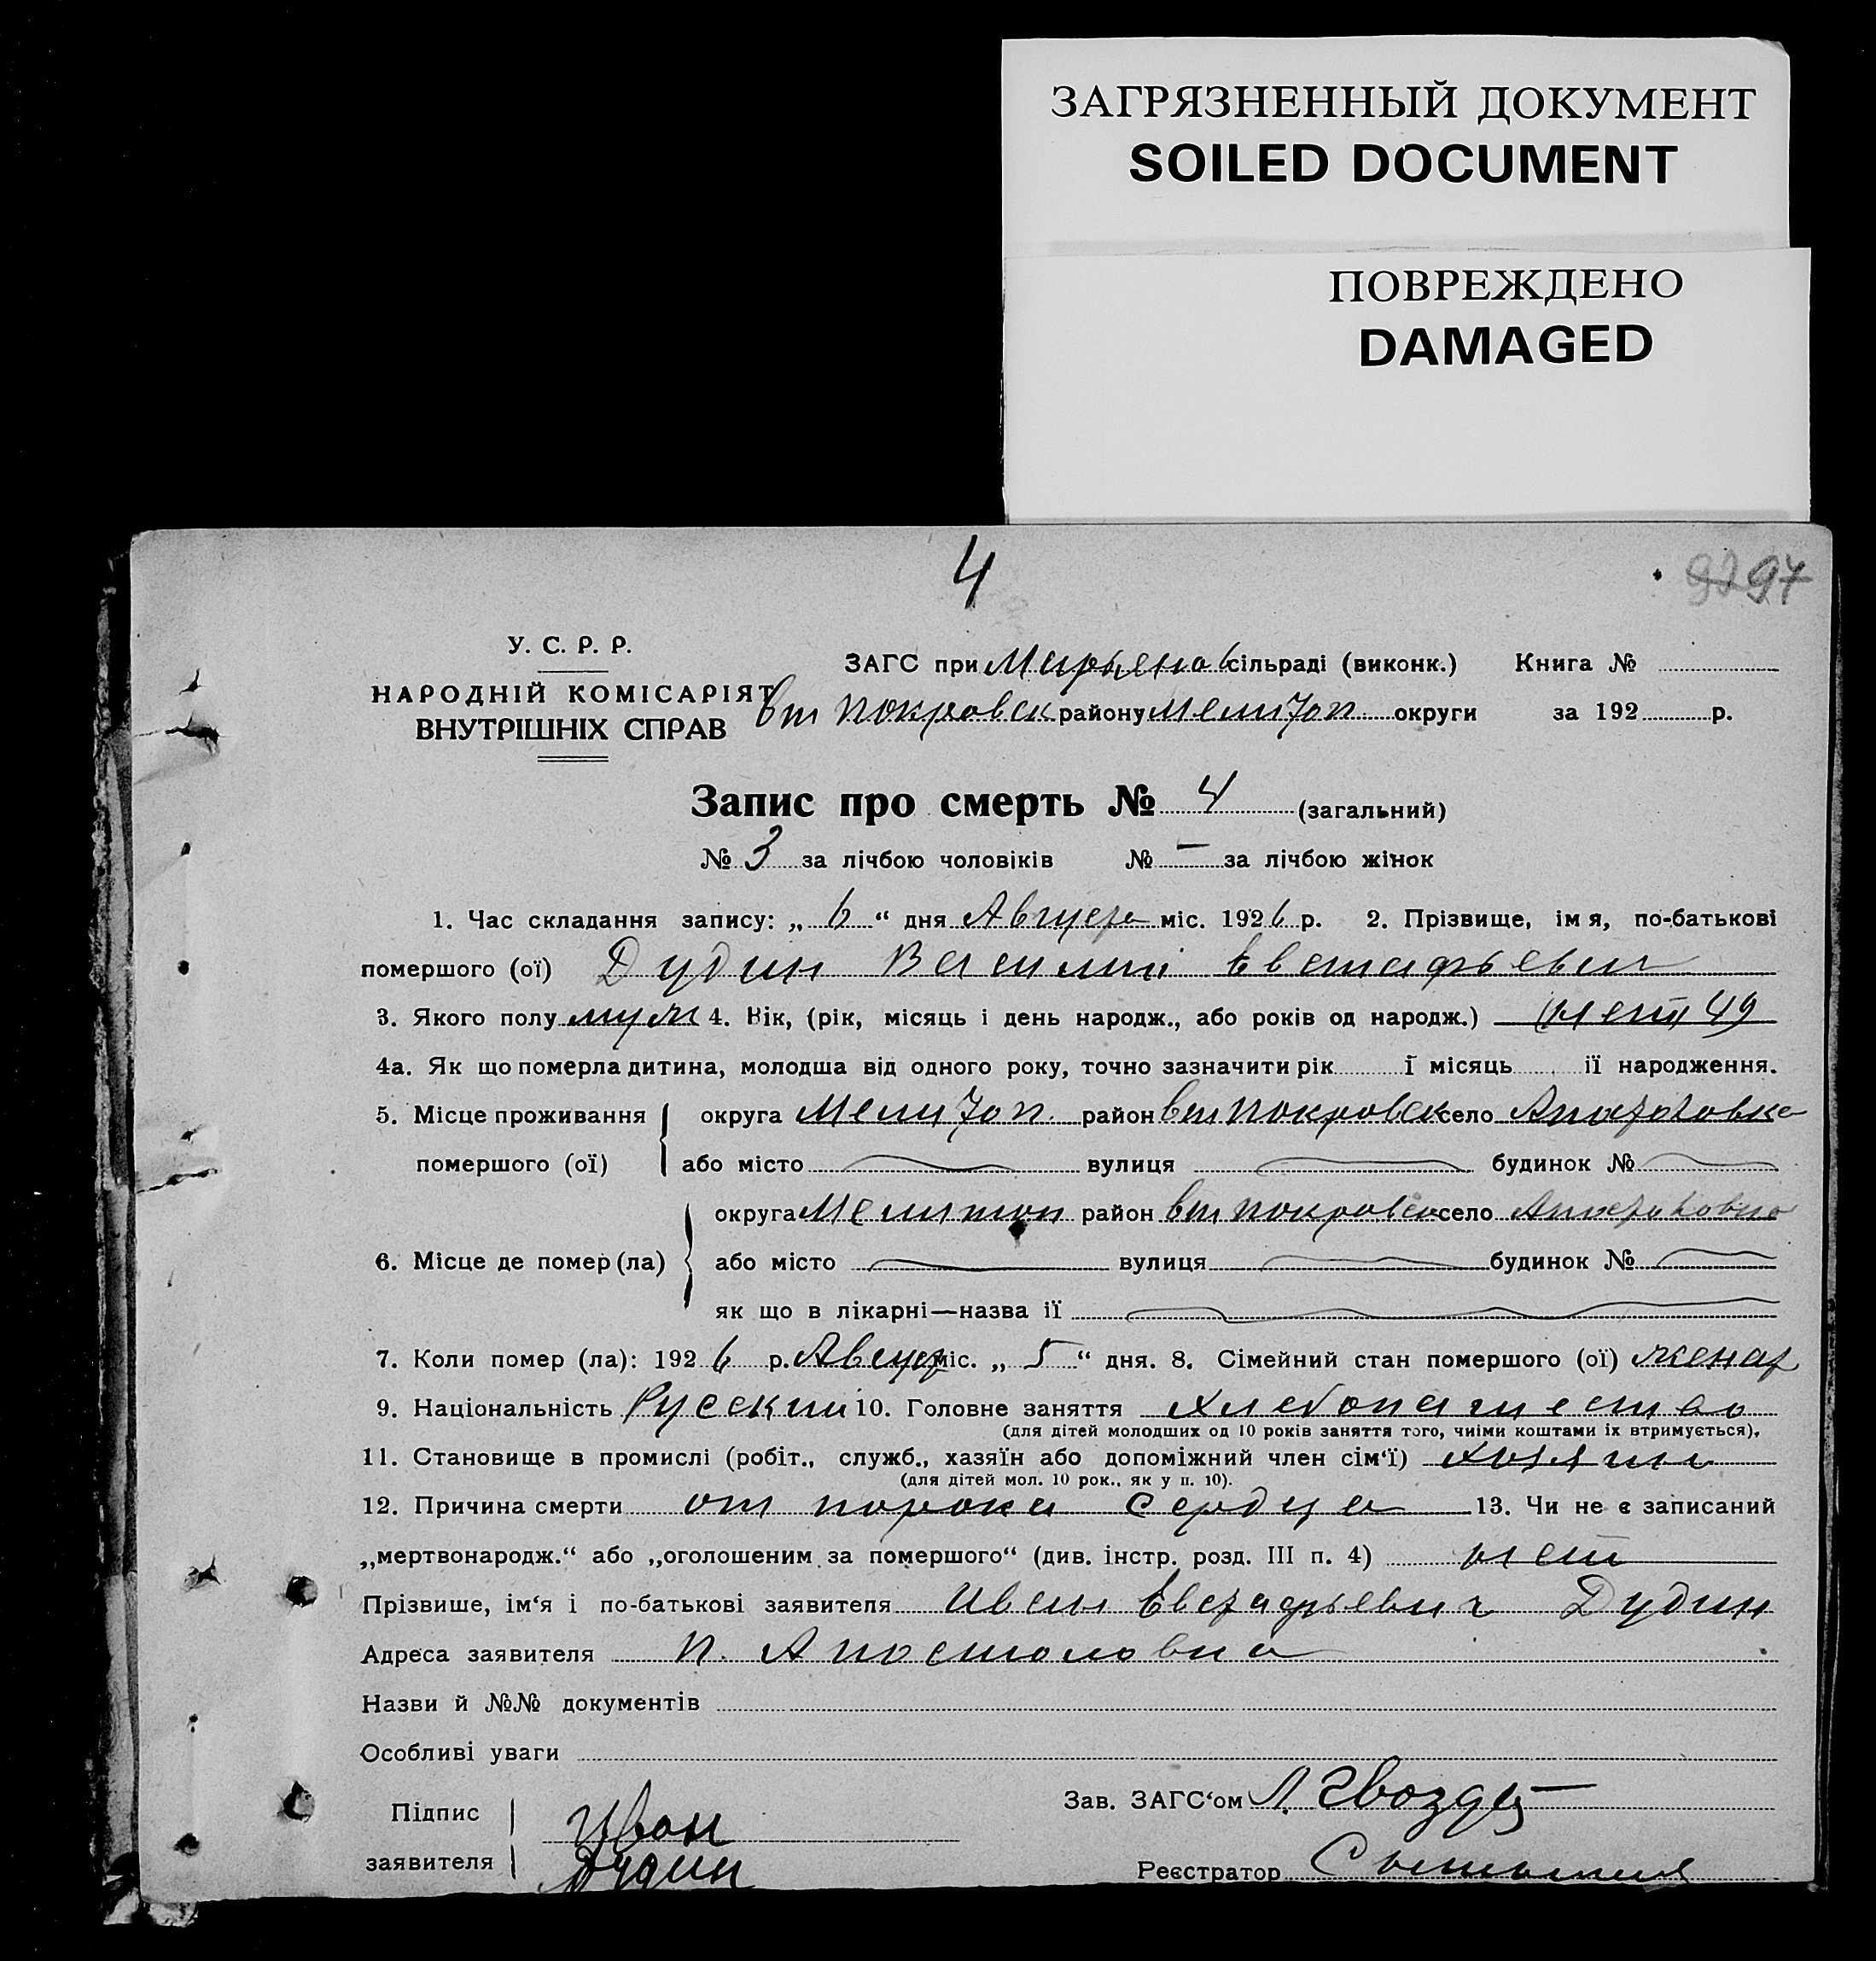 ЗАГРЯЗНЕННЫЙ ДОКУМЕНТ
SOILED DOCUMENT
ПОВРЕЖДЕНО
DAMAGED
4
97
У. С. Р. Р.
НАРОДНІЙ КОМІСАРІЯТ
ВНУТРІШНІХ СПРАВ
ЗАГС при Марьянов сільраді (виконк.) Книга №
вт Покровск району Мелитоп округи за 192 р.
Запис про смерть № 4 (загальний)
№ 3 за лічбою чоловіків № — за лічбою жінок
1. Час складання запису: „ 6 “ дня Августа міс. 1926 р. 2. Прізвище, імя, по-батькові
помершого (ої) Дудин Василий Евстафьевич
3. Якого полу муж 4. Вік, (рік, місяць і день народж., або років од народж.) лет 49
4а. Як що померла дитина, молодша від одного року, точно зазначити рік і місяць її народження.
5. Місце проживання округа Мелитоп. район вт Покровск село Апостоловка
помершого (ої) або місто вулиця будинок №
округа Мелитоп район вт Покровск село Апостоловка
6. Місце де помер (ла) або місто вулиця будинок №
як що в лікарні—назва її
7. Коли помер (ла): 1926 р. Август міс. „ 5 “ дня. 8. Сімейний стан помершого (ої) женат
9. Національність Русский 10. Головне заняття хлебопашество
(для дітей молодших од 10 років заняття того, чиїми коштами їх втримується).
11. Становище в промислі (робіт., служб., хазяїн або допоміжний член сім‘ї) хозяин
(для дітей мол. 10 рок., як у п. 10).
12. Причина смерти от порока сердца 13. Чи не є записаний
„мертвонародж.“ або „оголошеним за помершого“ (див. інстр. розд. III п. 4) нет
Прізвише, ім‘я і по-батькові заявителя Иван Евстафьевич Дудин
Адреса заявителя п. Апостоловка
Назви й №№ документів
Особливі уваги
Підпис Иван
заявителя Дудин
Зав. ЗАГС‘ом Л. Гвозд
Реєстратор